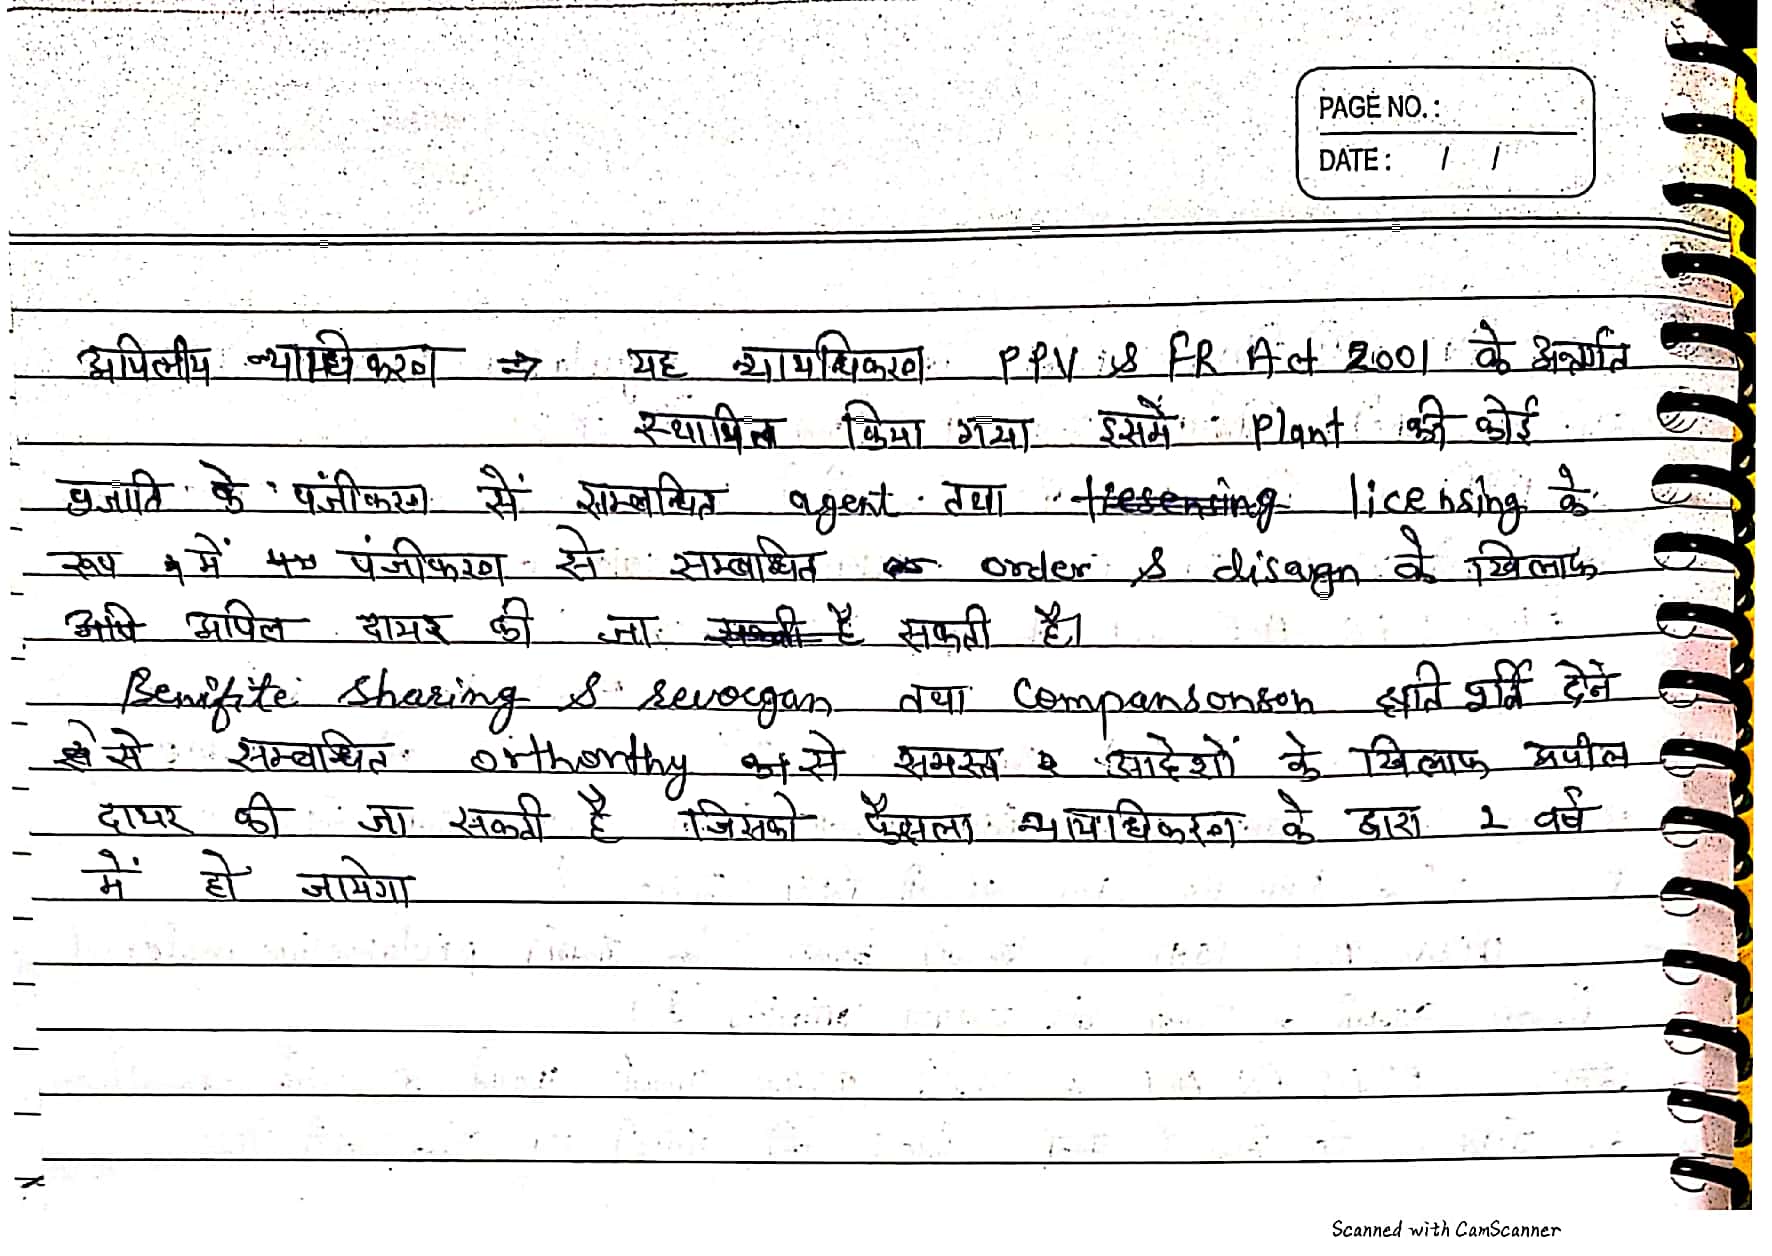 PAGE NO.:
DATE: / /
अपिलीय न्यायधिकरण ⇒ यह न्यायधिकरण PPV & FR Act 2001 के अन्तर्गत
स्थापित किया गया इसमें Plant की कोई
प्रजाति के पंजीकरण सें सम्बन्धित agent तथा licensing के
रूप में पंजीकरण से सम्बधित order & disaign के खिलाफ
अपिल दायर की जा है सकती है।
Benifite sharing & revocgan तथा Compansonson क्षति पूर्ति देने
से सम्बधित orthorthy से समस्त आदेशों के खिलाफ अपील
दायर की जा सकती है जिसको फैसला न्यायाधिकरण के द्वारा 2 वर्ष
में हो जायेगा
Scanned with CamScanner